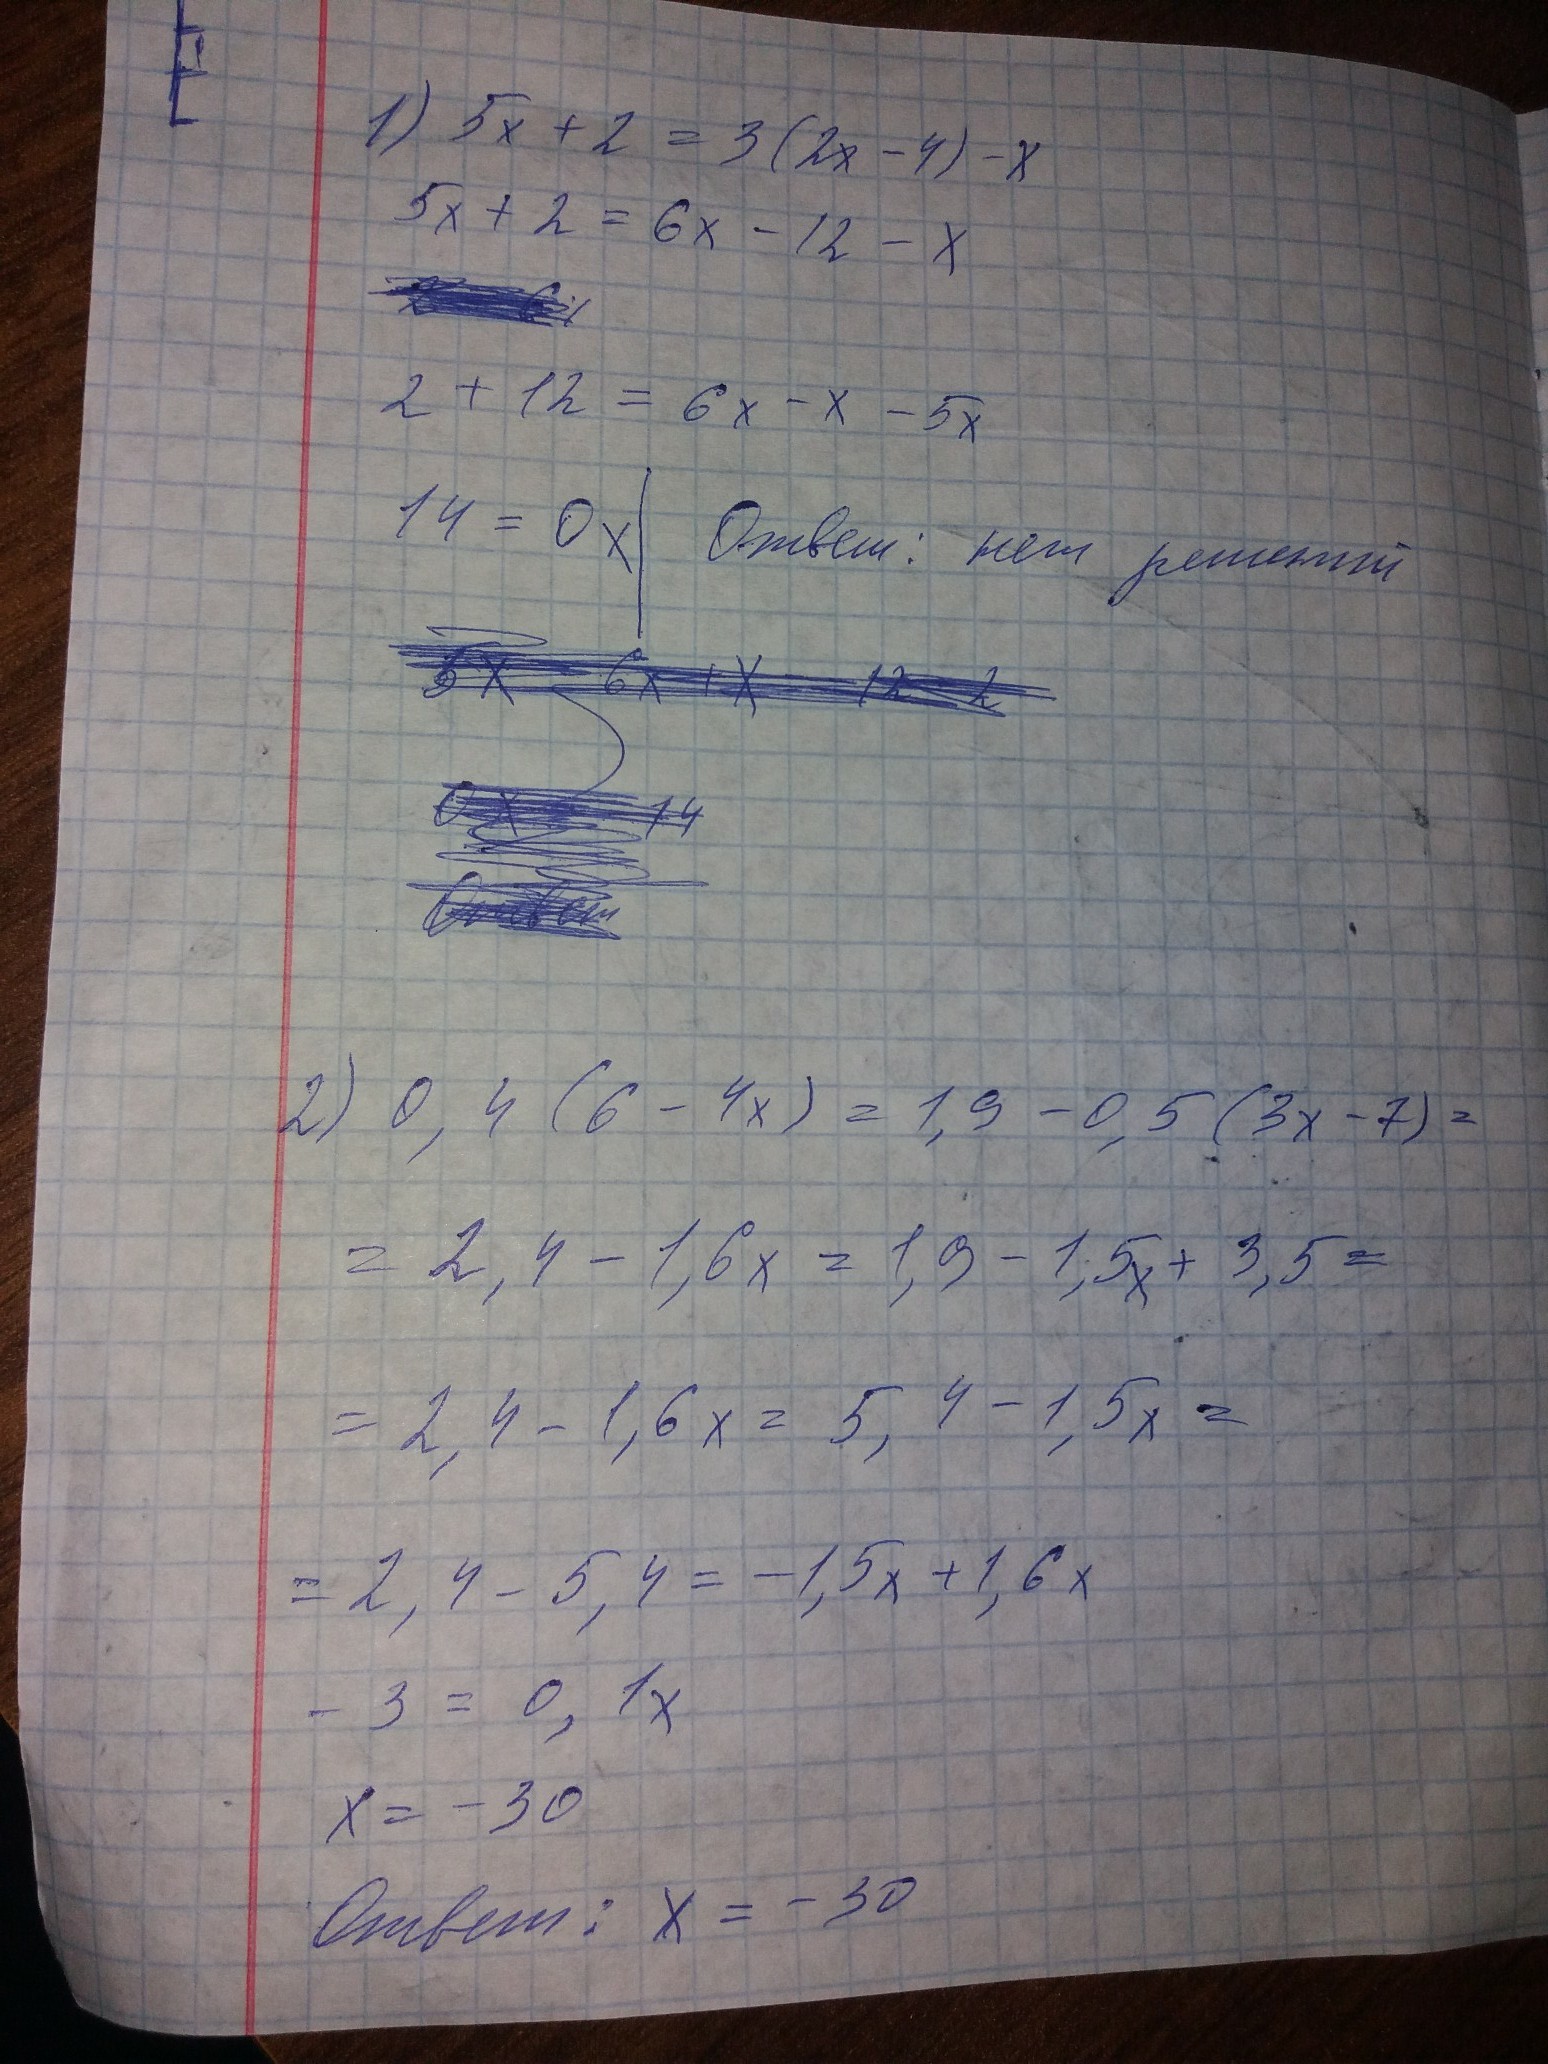 1) 5x + 2 = 3(2x - 4) - x
5x + 2 = 6x - 12 - x
2 + 12 = 6x - x - 5x
14 = 0x | Ответ: нет решений
5x 6x + x 12 2
0x 14
Ответ
2) 0,4(6 - 4x) = 1,9 - 0,5(3x - 7) =
= 2,4 - 1,6x = 1,9 - 1,5x + 3,5 =
= 2,4 - 1,6x = 5,4 - 1,5x =
= 2,4 - 5,4 = -1,5x + 1,6x
- 3 = 0,1x
x = -30
Ответ: x = -30